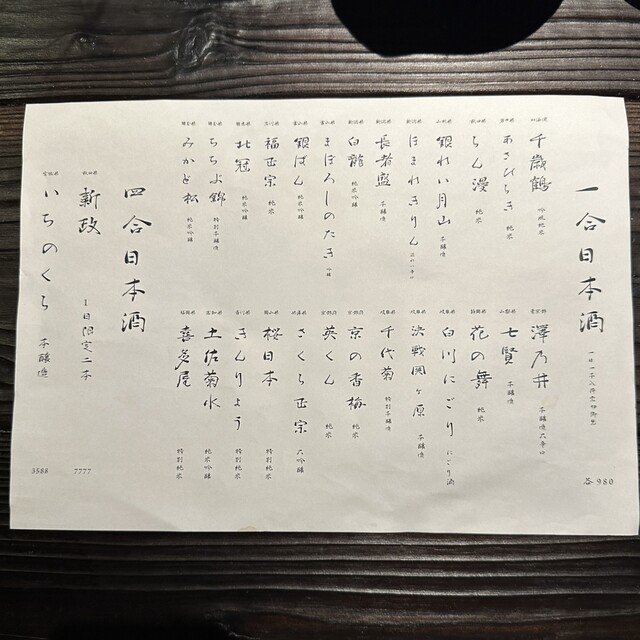 一合日本酒
各980
北海道 千歳鶴 吟風純米
岩手県 あさびらき 純米
秋田県 らん漫 純米
山形県 銀れい月山 本醸造
新潟県 ほまれきりん
新潟県 長者盛 本醸造
新潟県 白龍 純米吟醸
富山県 まぼろしのたき 吟醸
富山県 銀ばん 純米吟醸
石川県 福正宗 純米
栃木県 北冠 純米吟醸
ちちぶ錦 特別本醸造
みかど松 純米吟醸
東京都 澤乃井 本醸造大辛口
山梨県 七賢 本醸造
静岡県 花の舞 純米
岐阜県 白川にごり にごり酒
岐阜県 決戦関ヶ原 本醸造
岐阜県 千代菊 特別本醸造
京都府 京の香梅 純米
京都府 英くん 純米
兵庫県 さくら正宗 大吟醸
岡山県 桜日本 特別純米
香川県 きんりょう 特別純米
高知県 土佐菊水 純米吟醸
福岡県 喜多屋 特別純米
四合日本酒
秋田県 新政 1日限定二本 7777
宮城県 いちのくら 本醸造 3588